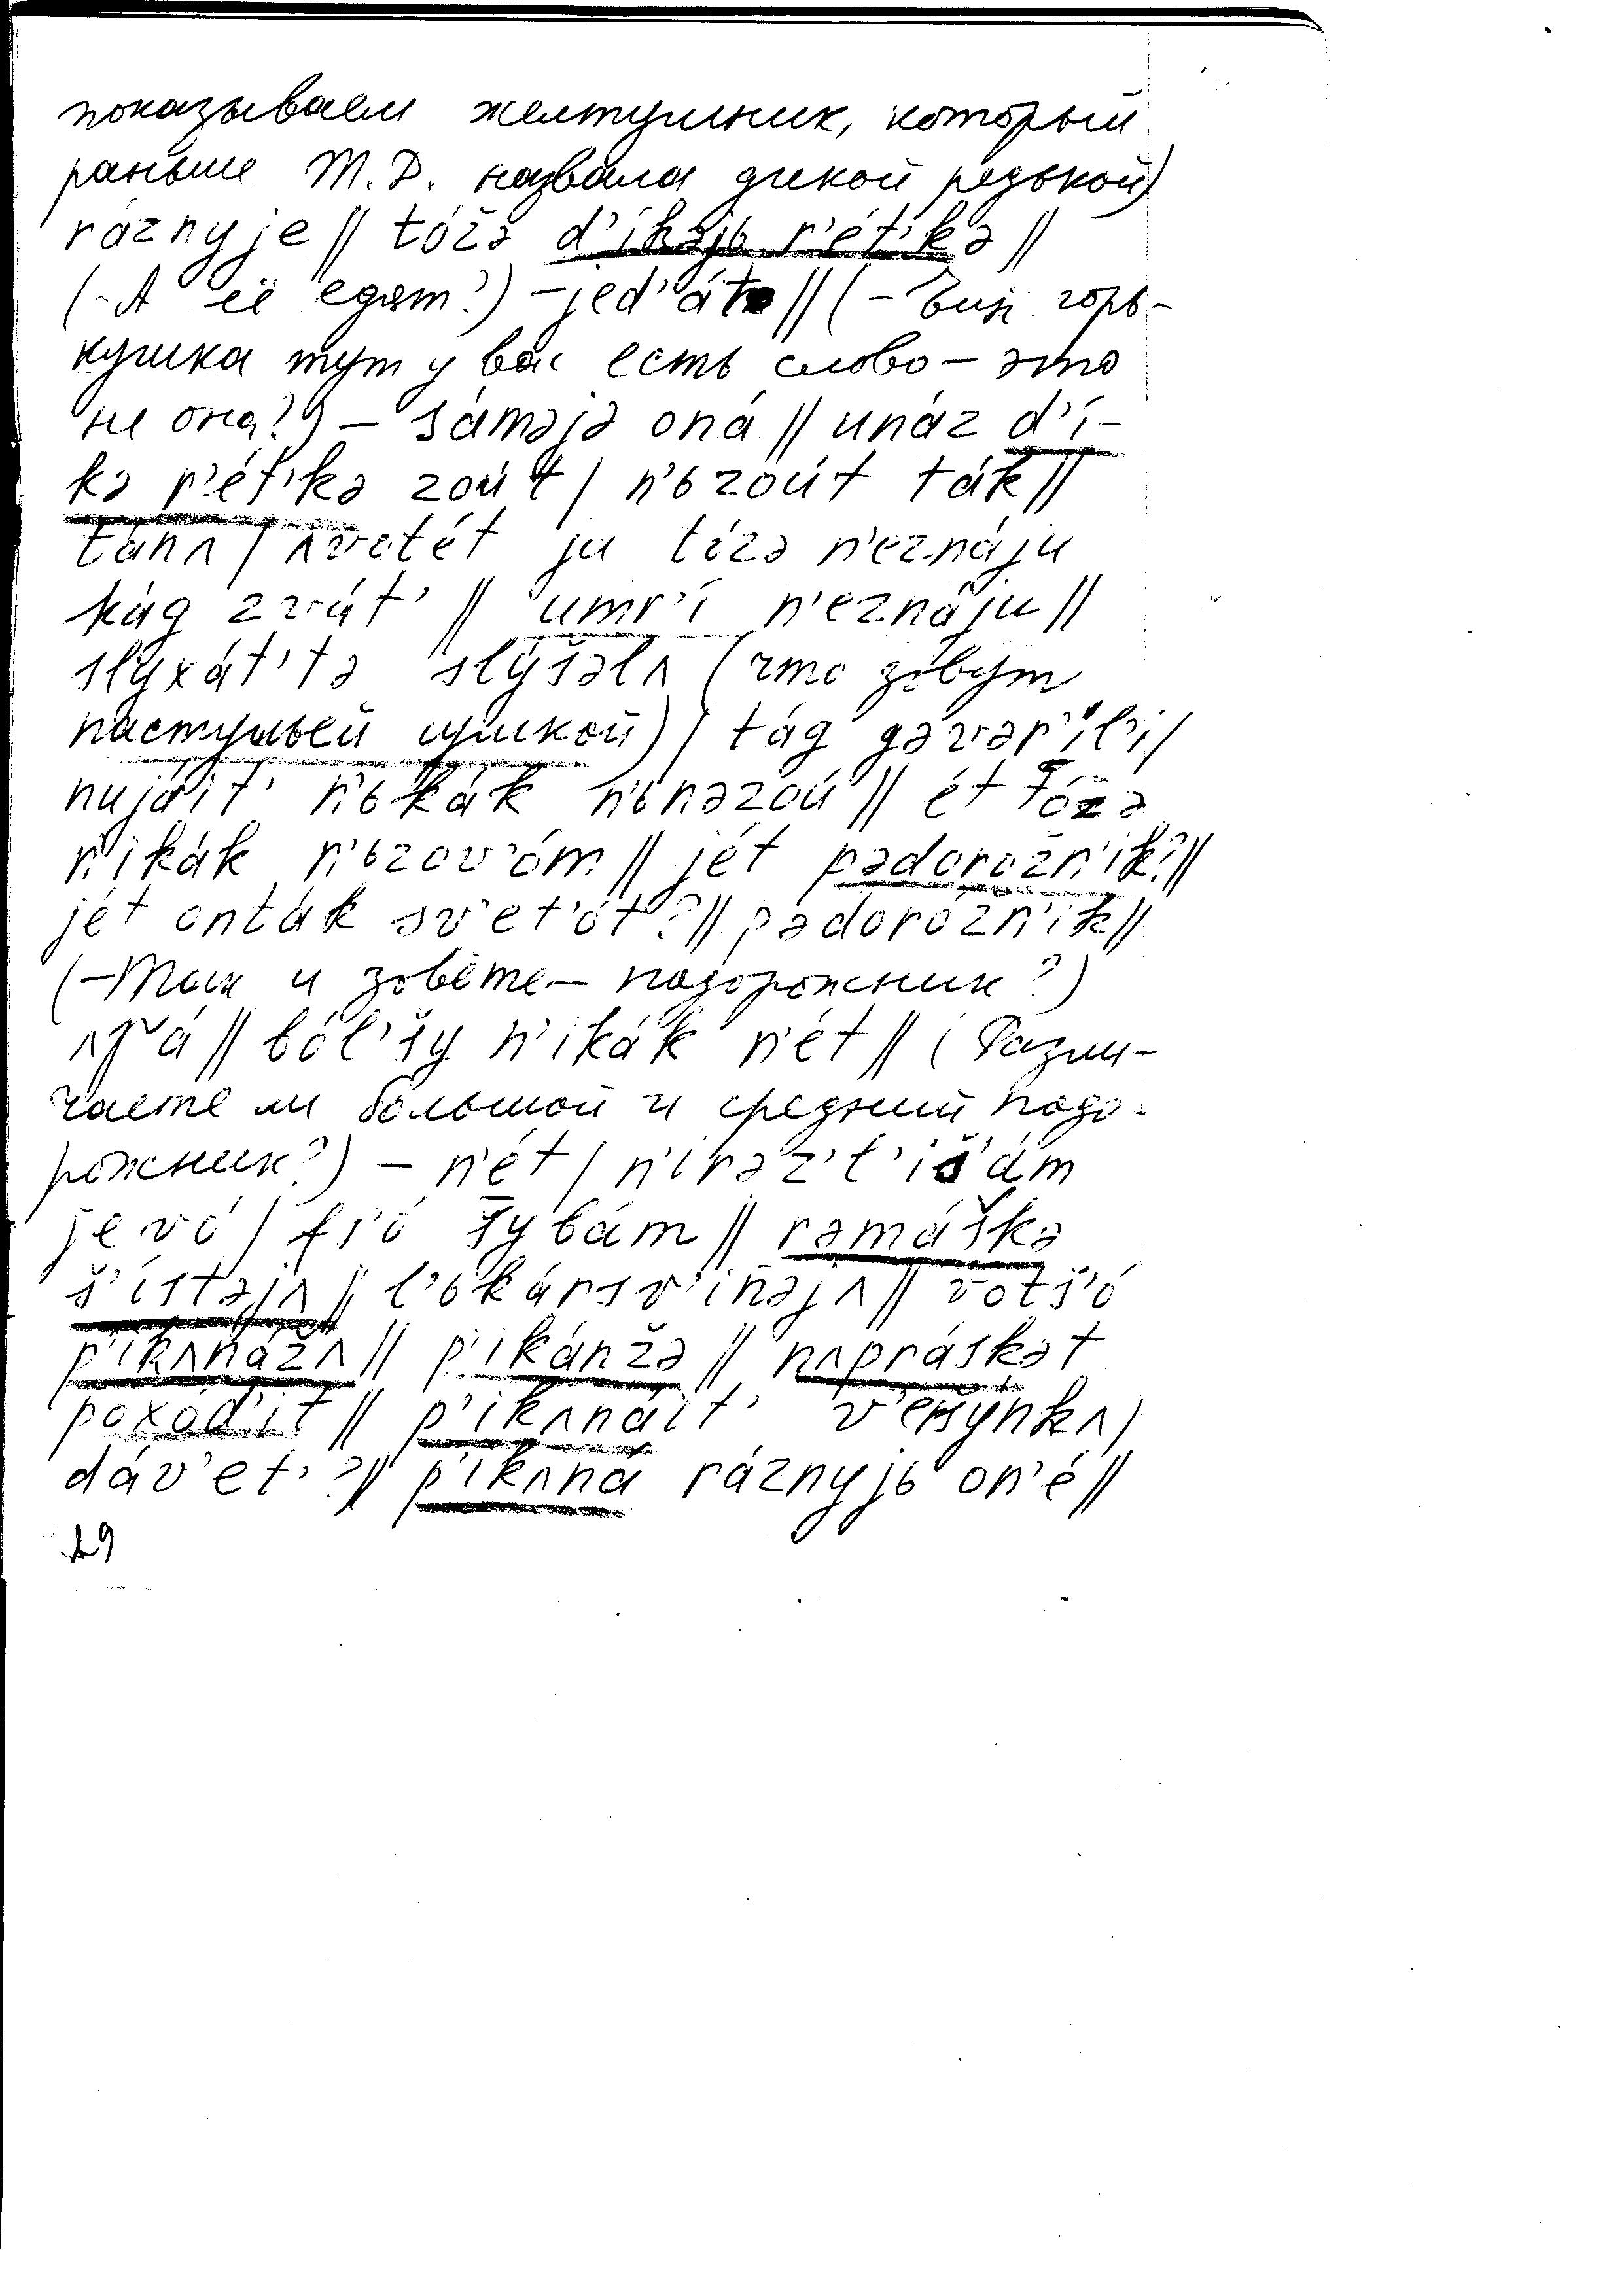 показываем желтушник, который
раньше Т.Д. назвала дикой редькой)
ráznyje || tóžə d'íkəjь r'ét'kə ||
(-А её едят?) –jed'át || (– Ещё горь-
кушка тут у вас есть слово – это
не она?) – sáməjə oná || unáz d'í-
kə r'ét'kə zoút / n'ьzoút ták ||
ʌvotét ju tózə n'eznáju
kág zvát' || umr'í n'eznáju ||
slyxát'tə slýšəlʌ (что зовут
пастушьей сумкой) / tág gəvər'íl'i /
nujáit' n'ьkák n'ьnəzoú || ét tóžə
n'ikák n'ьzov'óm || jét pədoróžn'ik? ||
jét onták sv'et'ót? || pədoróžn'ik ||
(–Так и зовёте – подорожник?)
ʌγá || ból'šy n'ikák n'ét || (Разли-
чаете ли большой и средний подо-
рожник?) – n'ét / n'irəz'l'iš'ám
jevó / fs'ó šybám || rəmáškə
š'ístəjʌ || l'ьkársv'inəjʌ || votš'ó
p'ikʌnážʌ || p'ikánžə || nʌpráskət
poxód'it || p'ikʌnáit' v'eršýnkʌ /
dáv'et'? || p'ikʌná ráznyjь on'é ||
19